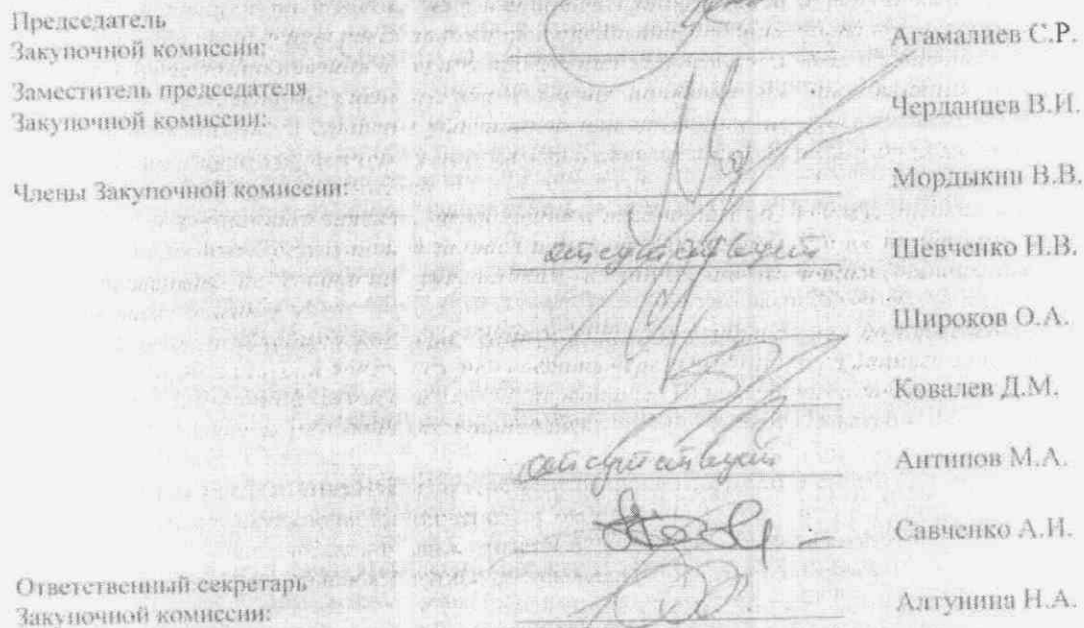 Председатель
Закупочной комиссии: Агамалиев С.Р.
Заместитель председателя
Закупочной комиссии: Черданцев В.И.
Члены Закупочной комиссии: Мордыкин В.В.
отсутствует Шевченко Н.В.
Широков О.А.
Ковалев Д.М.
отсутствует Антипов М.А.
Савченко А.И.
Ответственный секретарь
Закупочной комиссии: Алтунина Н.А.